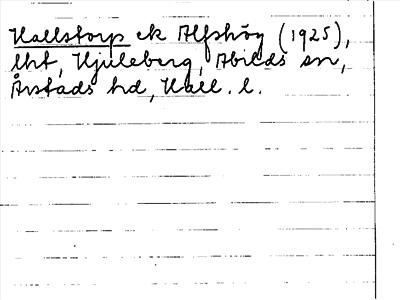 Hallstorp ek Alfshög (1925),
lht, Hjuleberg, Abilds sn,
Årstads hd, Hall. l.